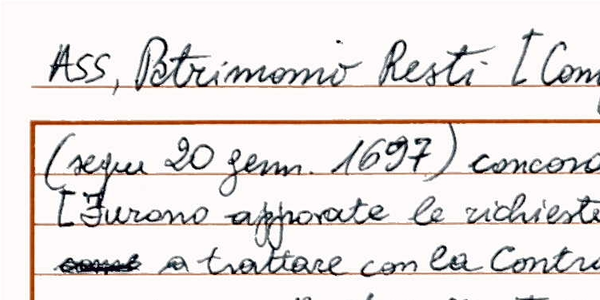 ASS, Patrimonio Resti [Com
(segue 20 genn. 1697) concord
[Furono apporate le richieste
a trattare con la Contr